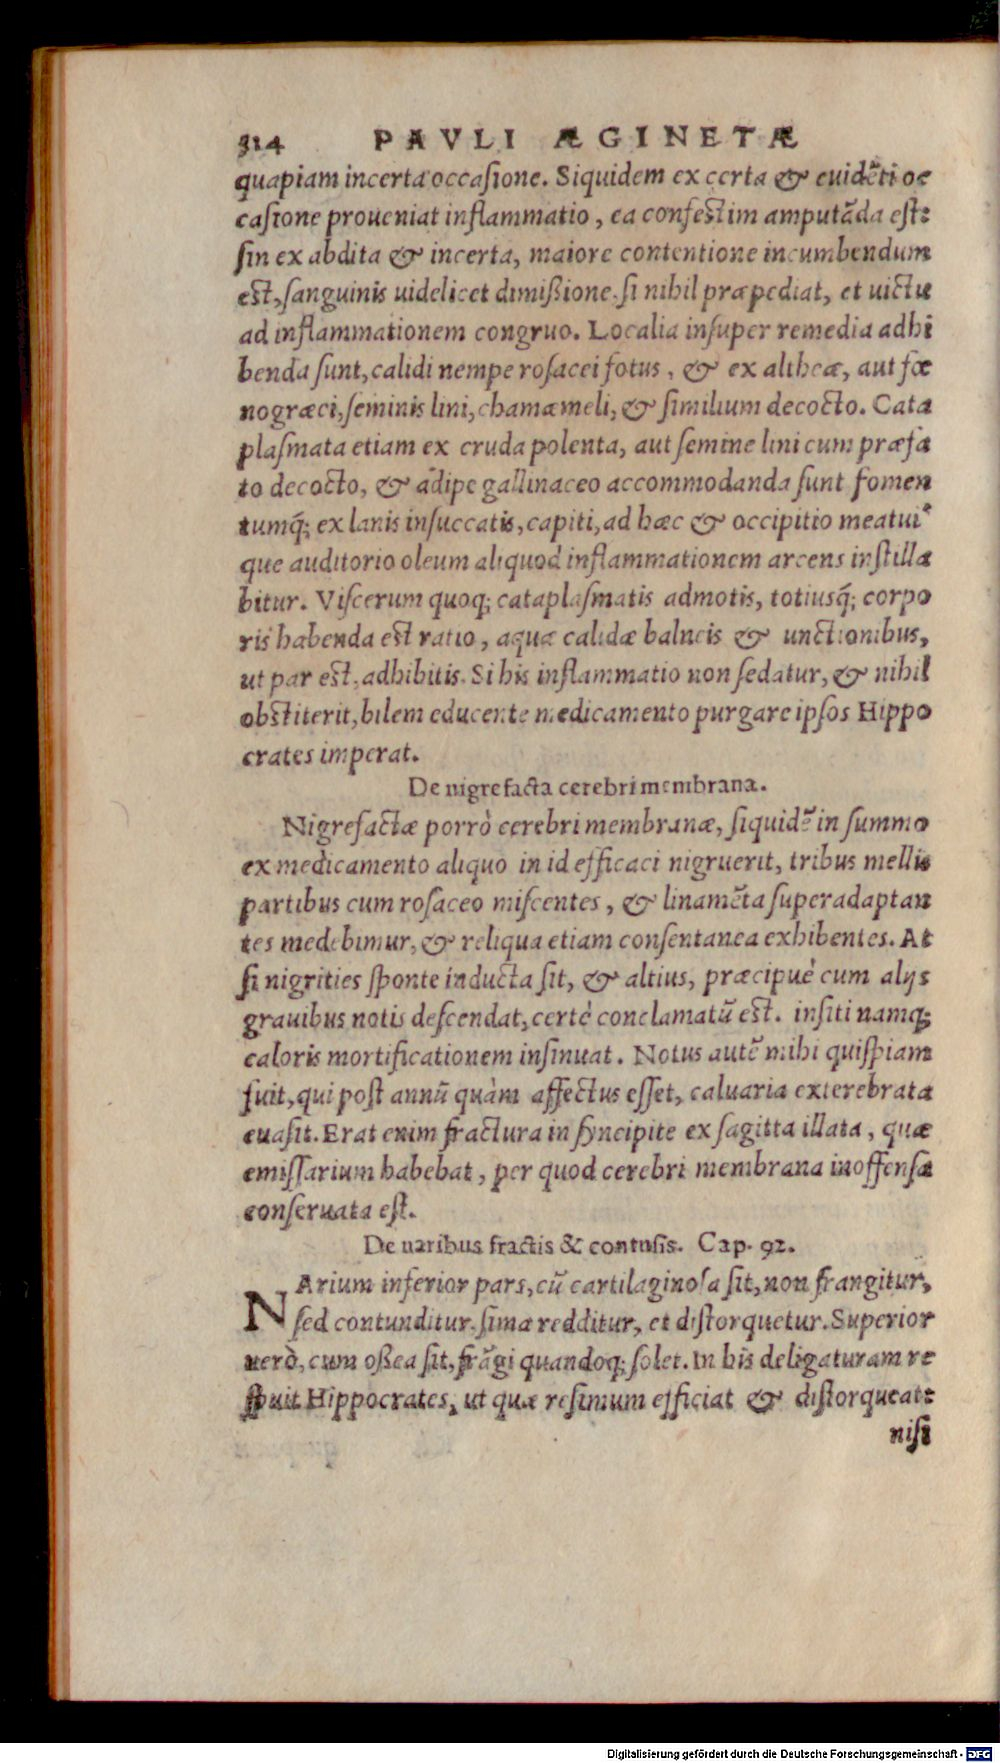 314 PAVLI ÆGINETÆ
quapiam incerta occaſione. Siquidem ex certa & euidẽti oc
caſione proueniat inflammatio, ea confeſtim amputãda eſt:
ſin ex abdita & incerta, maiore contentione incumbendum
eſt, ſanguinis uidelicet dimißione, ſi nihil præpediat, et uictu
ad inflammationem congruo. Localia inſuper remedia adhi
benda ſunt, calidi nempe roſacei fotus, & ex altheæ, aut fœ
nogræci, ſeminis lini, chamæmeli, & ſimilium decocto. Cata
plaſmata etiam ex cruda polenta, aut ſemine lini cum præfa
to decocto, & adipe gallinaceo accommodanda ſunt fomen
tumq́; ex lanis inſuccatis, capiti, ad hæc & occipitio meatui
que auditorio oleum aliquod inflammationem arcens inſtilla
bitur. Viſcerum quoq; cataplaſmatis admotis, totiusq́; corpo
ris habenda eſt ratio, aquæ calidæ balneis & unctionibus,
ut par eſt, adhibitis. Si his inflammatio non ſedatur, & nihil
obſtiterit, bilem educente medicamento purgare ipſos Hippo
crates imperat.
De nigrefacta cerebri membrana.
Nigrefactæ porrò cerebri membranæ, ſiquidẽ in ſummo
ex medicamento aliquo in id efficaci nigruerit, tribus mellis
partibus cum roſaceo miſcentes, & linamẽta ſuperadaptan
tes medebimur, & reliqua etiam conſentanea exhibentes. At
ſi nigrities ſponte inducta ſit, & altius, præcipuè cum alijs
grauibus notis deſcendat, certè conclamatũ eſt. inſiti namq;
caloris mortificationem inſinuat. Notus autẽ mihi quiſpiam
fuit, qui poſt annũ quàm affectus eſſet, caluaria exterebrata
euaſit. Erat enim fractura in ſyncipite ex ſagitta illata, quæ
emiſſarium habebat, per quod cerebri membrana inoffenſa
conſeruata eſt.
De naribus fractis & contuſis. Cap. 92.
NArium inferior pars, cũ cartilaginoſa ſit, non frangitur,
ſed contunditur. ſima redditur, et diſtorquetur. Superior
uerò, cum oßea ſit, frãgi quandoq; ſolet. In his deligaturam re
ſpuit Hippocrates, ut quæ reſimum efficiat & diſtorqueat:
niſi
Digitalisierung gefördert durch die Deutsche Forschungsgemeinschaft - DFG